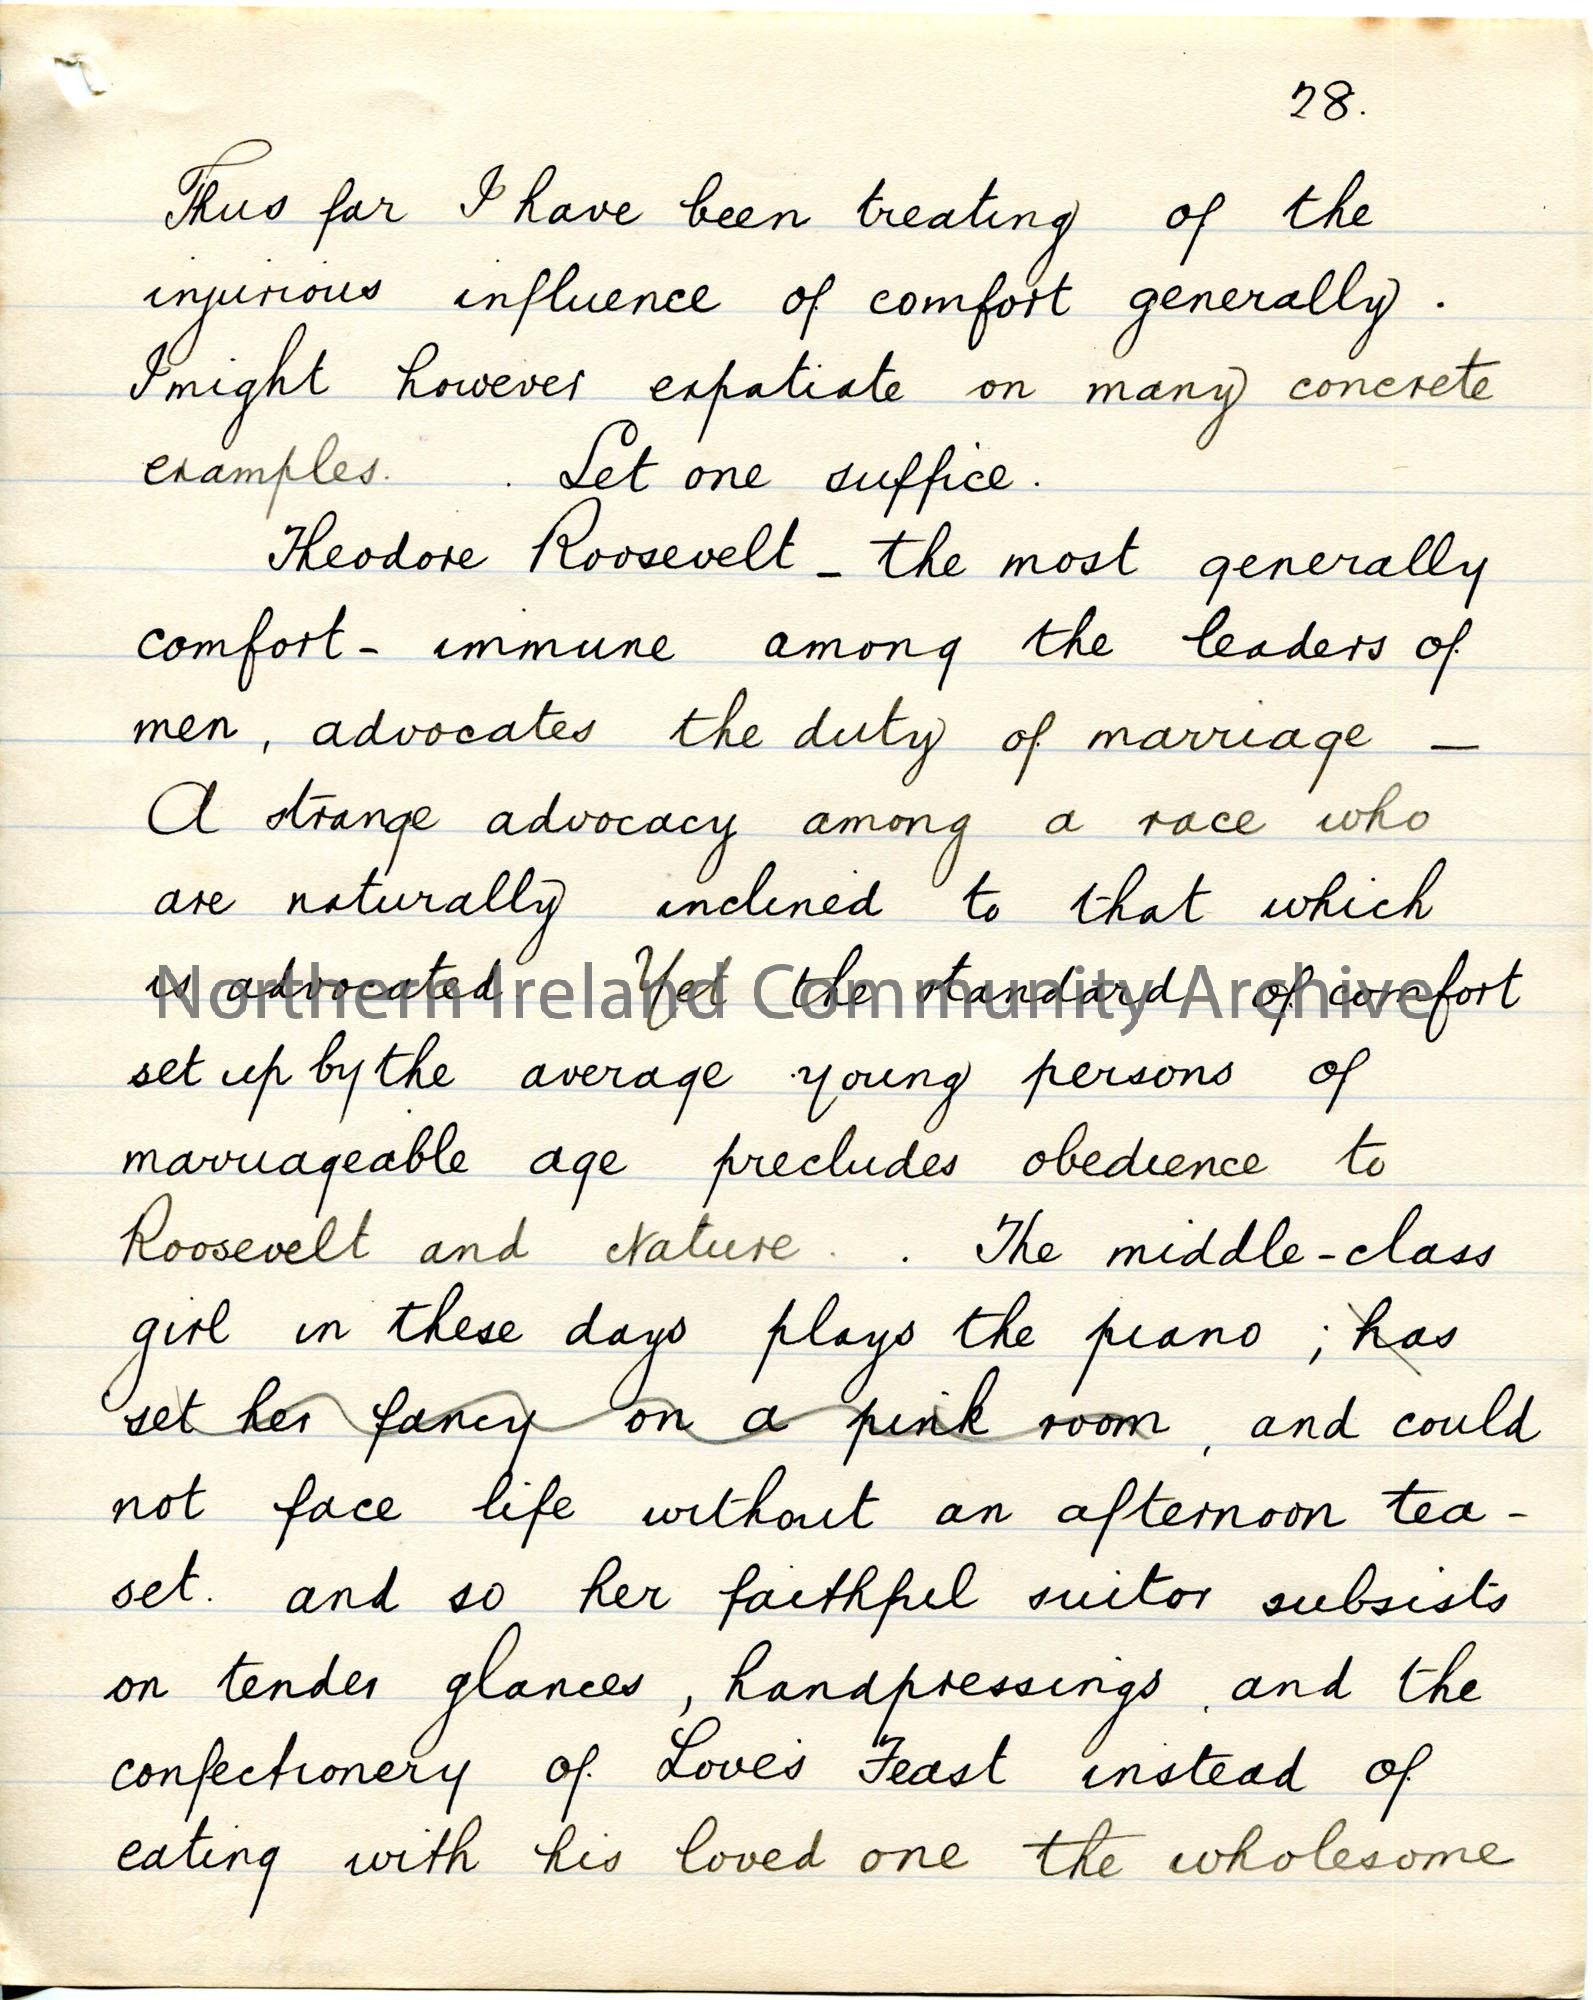 28.
Thus far I have been treating of the
injurious influence of comfort generally.
I might however expatiate on many concrete
examples. . Let one suffice.
Theodore Roosevelt - the most generally
comfort-immune among the leaders of
men, advocates the duty of marriage —
A strange advocacy among a race who
are naturally inclined to that which
is advocated Yet the standard of comfort
Northern Ireland Community Archive
set up by the average young persons of
marriageable age precludes obedience to
Roosevelt and Nature. . The middle-class
girl in these days plays the piano ; has
set her fancy on a pink room, and could
not face life without an afternoon tea-
set. and so her faithful suitor subsists
on tender glances, handpressings, and the
confectionery of Love's Feast instead of
eating with his loved one the wholesome